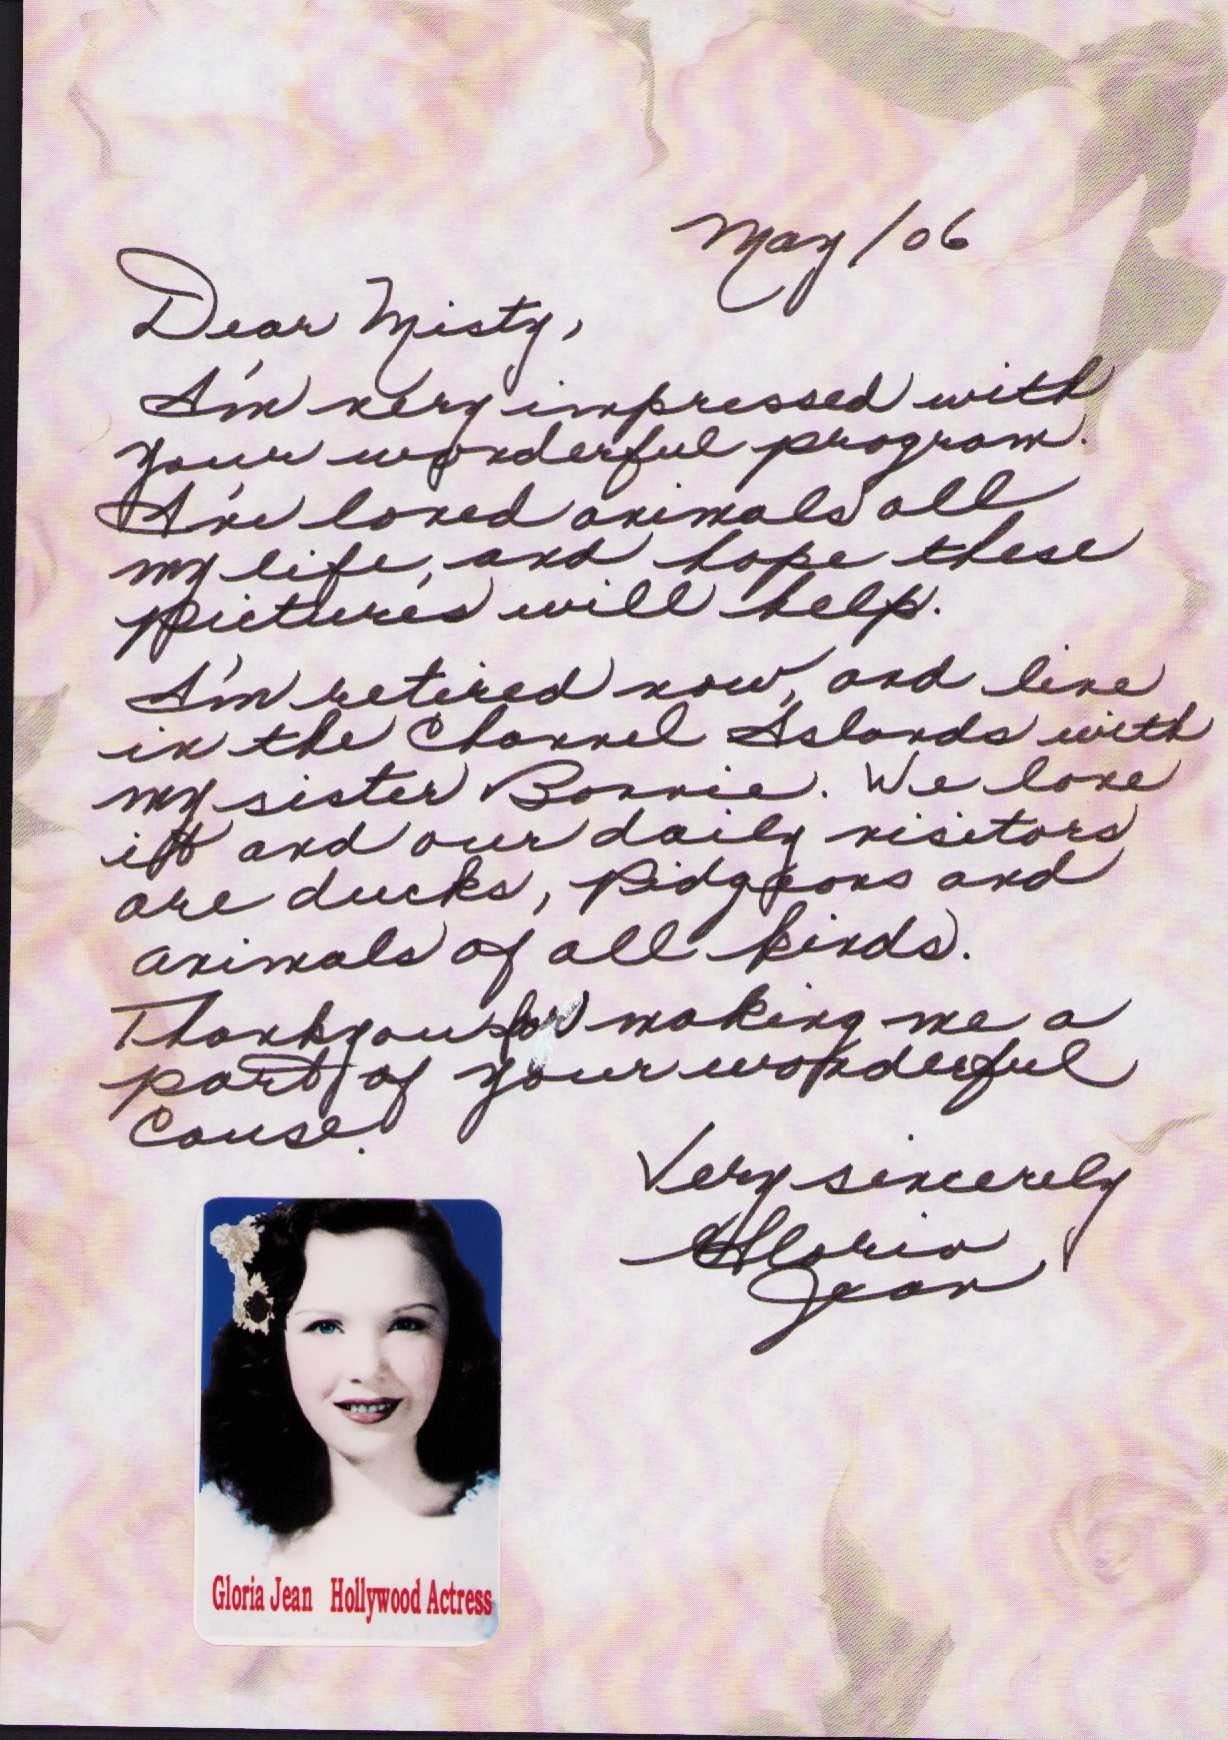 May/06
Dear Misty,
I'm very impressed with
your wonderful program.
I've loved animals all
my life, and hope these
pictures will help.
I'm retired now, and live
in the Channel Islands with
my sister Bonnie. We love
it and our daily visitors
are ducks, Pidgeons and
animals of all kinds.
Thank you for making me a
part of your wonderful
Cause.
Very sincerely
Gloria
Jean
Gloria Jean Hollywood Actress